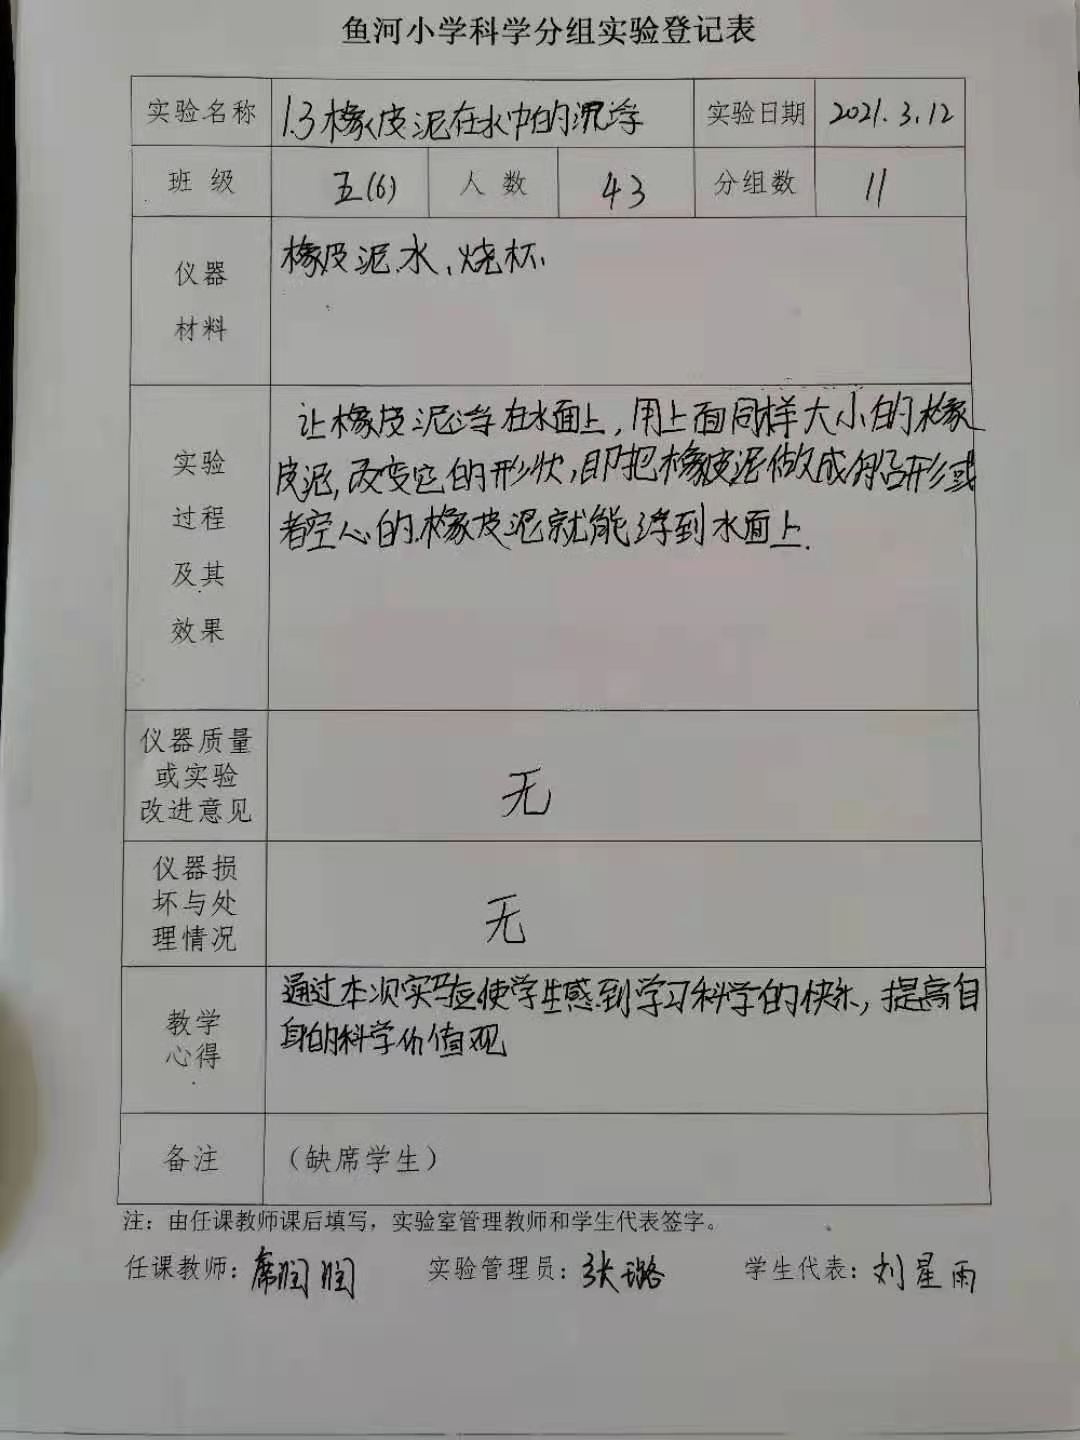 鱼河小学科学分组实验登记表
实验名称 1.3橡皮泥在水中的沉浮 实验日期 2021.3.12
班 级 五(6) 人 数 43 分组数 11
仪器
材料
橡皮泥、水、烧杯、
实验
过程
及其
效果
让橡皮泥浮在水面上,用上面同样大小的橡
皮泥,改变它的形状,即把橡皮泥做成船形或
者空心的橡皮泥就能浮到水面上.
仪器质量
或实验
改进意见
无
仪器损
坏与处
理情况
无
教学
心得
通过本次实验使学生感到学习科学的快乐,提高自
身的科学价值观
备注 (缺席学生)
注:由任课教师课后填写,实验室管理教师和学生代表签字。
任课教师:席 实验管理员:张璐 学生代表:刘星雨